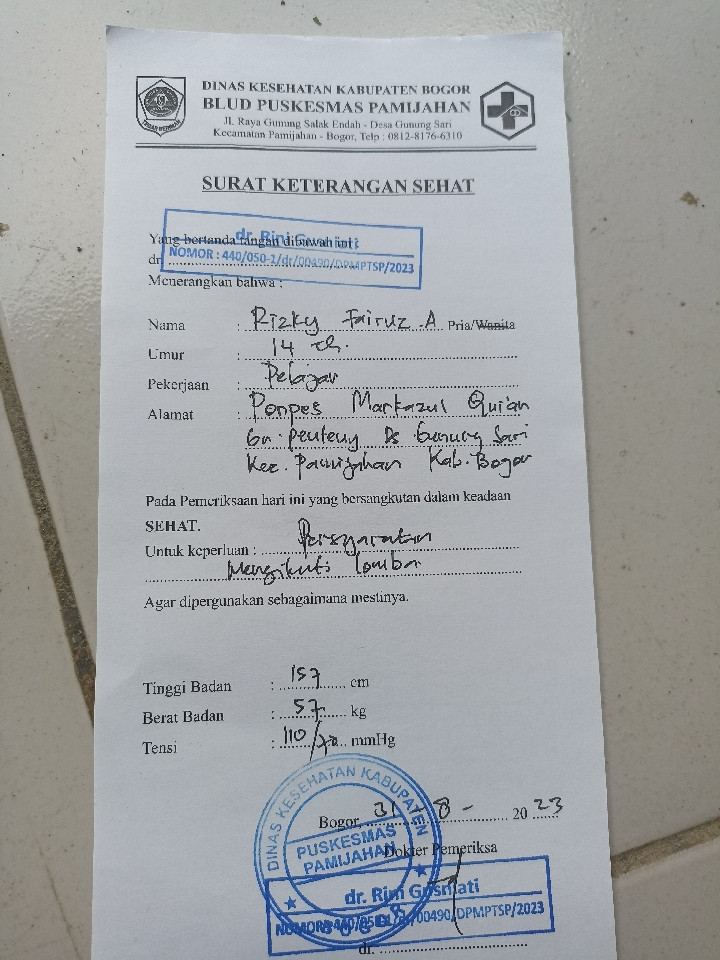 DINAS KESEHATAN KABUPATEN BOGOR
BLUD PUSKESMAS PAMIJAHAN
Jl. Raya Gunung Salak Endah - Desa Gunung Sari
Kecamatan Pamijahan - Bogor, Telp : 0812-8176-6310
SURAT KETERANGAN SEHAT
Yang bertanda tangan dibawah ini :
dr. Rini Gusniati
dr.
NOMOR : 440/050-1/dr/00490/DPMPTSP/2023
Menerangkan bahwa :
Nama : Rizky Fairuz .A Pria/Wanita
Umur : 14 th.
Pekerjaan : Pelajar
Alamat : Ponpes Markazul Qur'an
Gn. Penteng Ds Gunung Sari
Kec. Pamijahan Kab. Bogor
Pada Pemeriksaan hari ini yang bersangkutan dalam keadaan
SEHAT.
Untuk keperluan : Persyaratan
Mengikuti lomba
Agar dipergunakan sebagaimana mestinya.
Tinggi Badan : 157 cm
Berat Badan : 57 kg
Tensi : 110/70 mmHg
Bogor, 31 - 8 - 2023
DINAS KESEHATAN KABUPATEN
PUSKESMAS
PAMIJAHAN
BOGOR
Dokter Pemeriksa
dr. Rini Gusniati
NOMOR : 440/050-1/dr/00490/DPMPTSP/2023
dr.